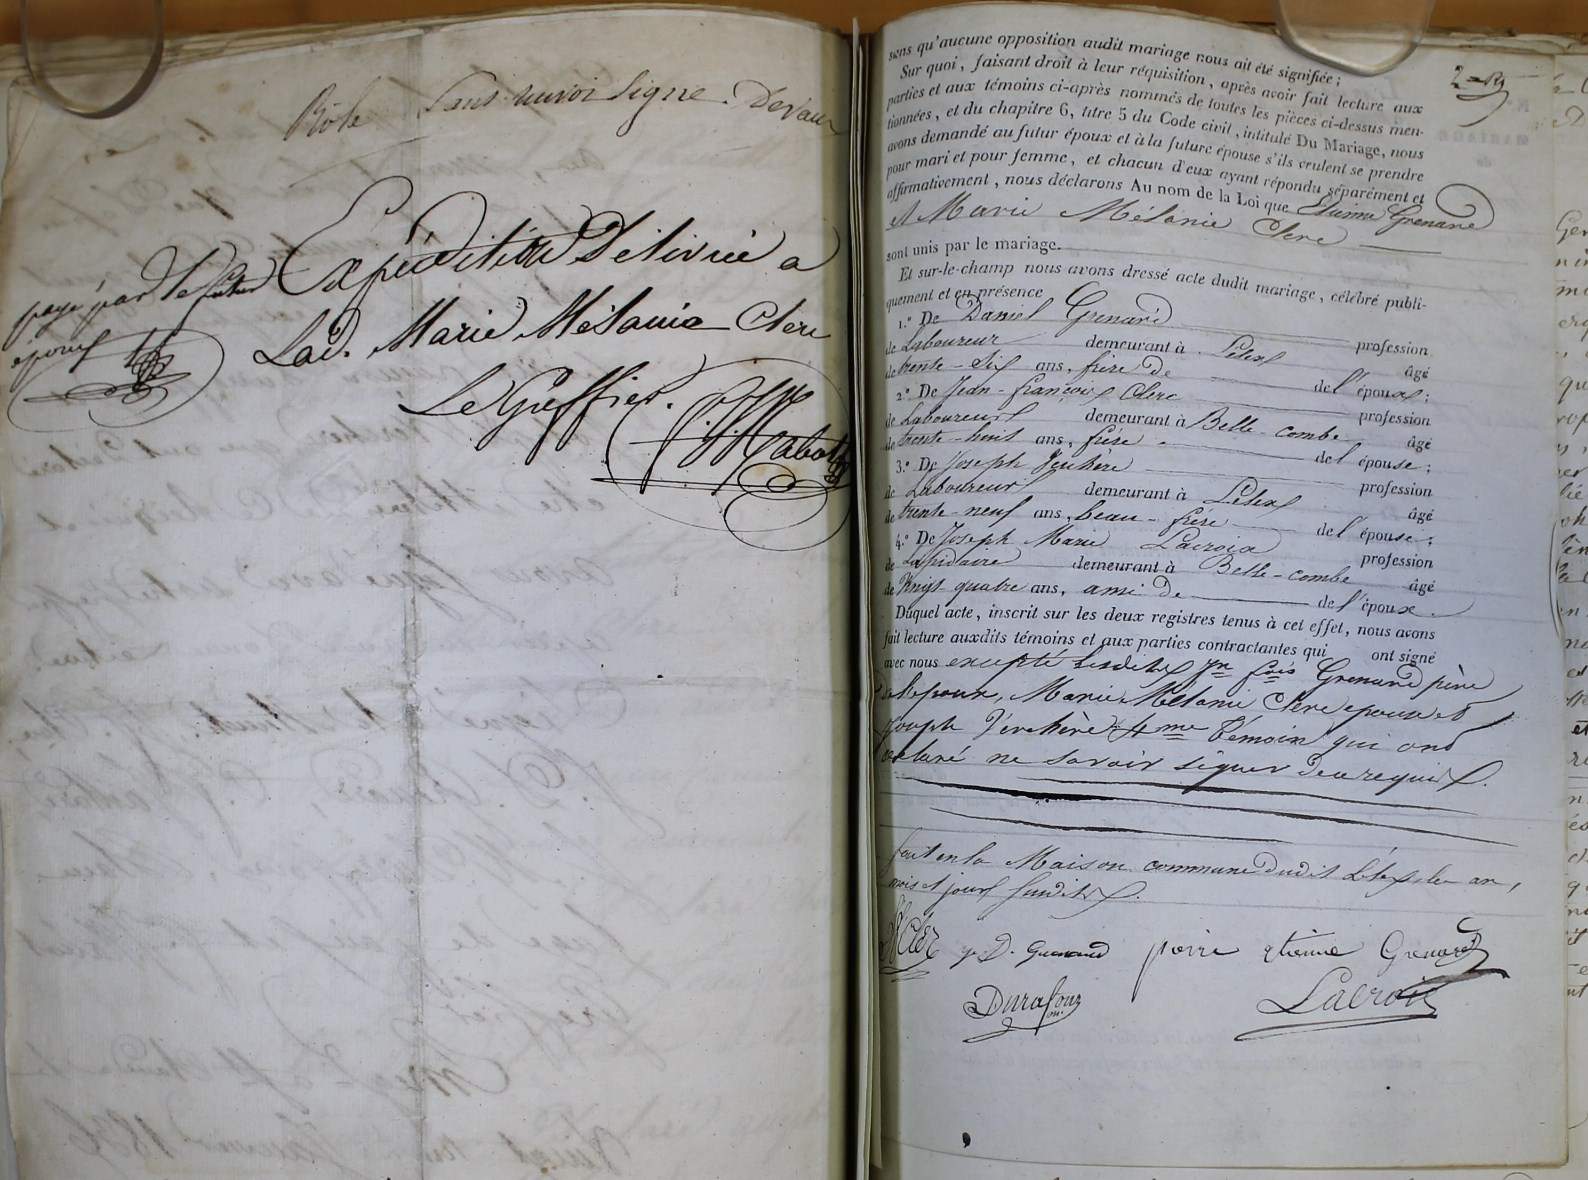 Rôle sans renvoi signé. Devaux
Expédition Délivrée a
Lad. Marie Mélanie Clerc
Le Greffier.
payé par le futur
époux
2
sens qu'aucune opposition audit mariage nous ait été signifiée ;
Sur quoi, faisant droit à leur réquisition, après avoir fait lecture aux
parties et aux témoins ci-après nommés de toutes les pièces ci-dessus men-
tionnées, et du chapitre 6, titre 5 du Code civil, intitulé Du Mariage, nous
avons demandé au futur époux et à la future épouse s'ils veulent se prendre
pour mari et pour femme, et chacun d'eux ayant répondu séparément et
affirmativement, nous déclarons Au nom de la Loi que Etienne Grenard
et Marie Mélanie Clerc
sont unis par le mariage.
Et sur-le-champ nous avons dressé acte dudit mariage, célébré publi-
quement et en présence
1.° De Daniel Grenard profession
de Laboureur demeurant à Lélex âgé
de trente-six ans, frère de de l'époux ;
2.° De Jean-françois Clerc profession
de Laboureur demeurant à Belle-combe âgé
de trente-huit ans, frère de l'épouse ;
3.° De Joseph profession
de Laboureur demeurant à Lélex âgé
de trente-neuf ans, beau-frère de l'épouse ;
4.° De Joseph Marie Lacroix profession
de Lapidaire demeurant à Belle-combe âgé
de Vingt-quatre ans, ami de de l'époux.
Duquel acte, inscrit sur les deux registres tenus à cet effet, nous avons
fait lecture auxdits témoins et aux parties contractantes qui ont signé
avec nous excepté lesdits Jn fois Grenard père
de l'époux, Marie Mélanie Clerc épouse et
Joseph 4me Témoin qui ont
déclaré ne savoir signer de ce requis.
fait en la Maison commune dudit Lélex les an,
mois et jour susdits.
Clerc J. D. Grenard pierre etienne Grenard
Durafour Lacroix